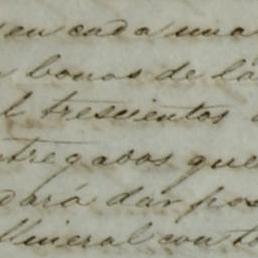 en cada una
bonos de la
l trescientos
ntregados que
dará dar pos
Mineral con to